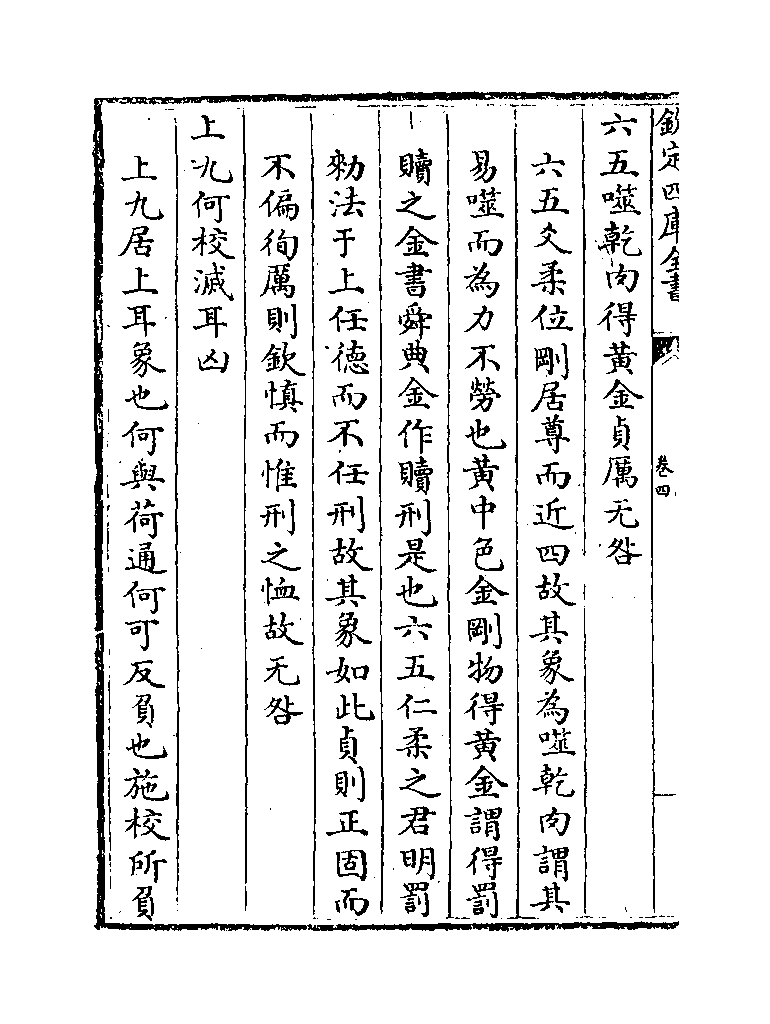 欽定四庫全書
卷四
六五噬乾肉得黃金貞厲无咎
六五爻柔位剛居尊而近四故其象為噬乾肉謂其
易噬而為力不勞也黃中色金剛物得黃金謂得罰
贖之金書舜典金作贖刑是也六五仁柔之君明罰
勑法于上任德而不任刑故其象如此貞則正固而
不偏徇厲則欽慎而惟刑之恤故无咎
上九何校滅耳凶
上九居上耳象也何與荷通何可反負也施校所負